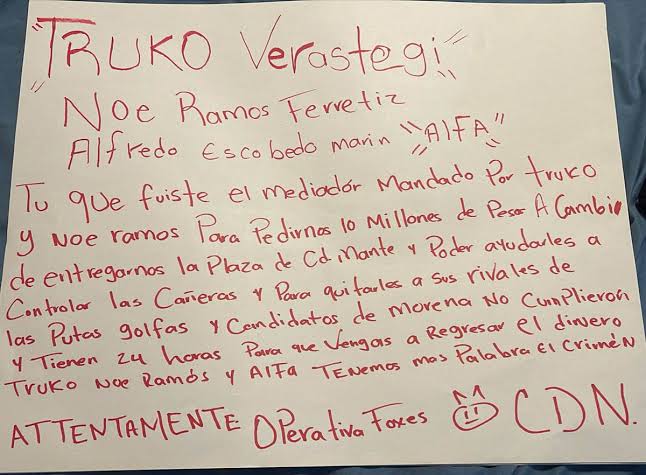 "TRUKO Verastegi"
Noe Ramos Ferretiz
Alfredo Escobedo marin "AlFA"
Tu que fuiste el mediador Mandado Por truko
y Noe ramos Para Pedirnos 10 Millones de Pesos A Cambio
de entregarnos la Plaza de Cd Mante y Poder ayudarles a
Controlar las Cañeras y Para quitarles a sus rivales de
las Putas golfas y Candidatos de morena No Cumplieron
y Tienen 24 horas Para que Vengas a Regresar el dinero
Truko Noe Ramos y AlFa Tenemos mas Palabra El Crimen
ATTENTAMENTE Operativa Foxes CDN.